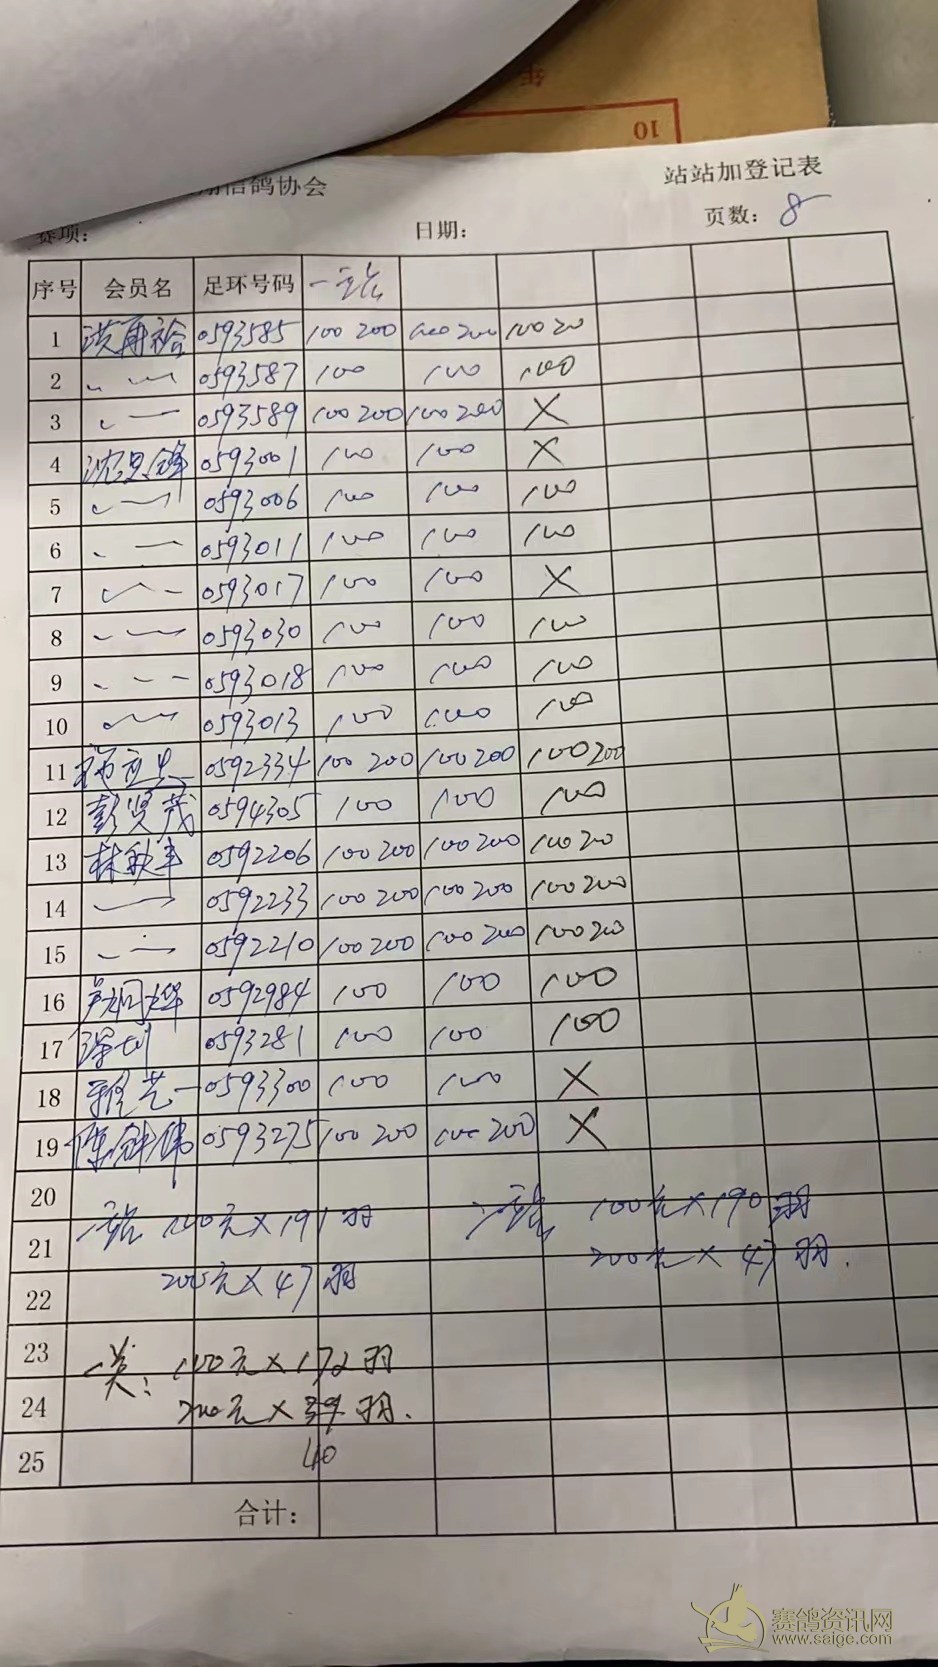 10
信鸽协会
站站加登记表
赛项:
日期:
页数: 8
序号 会员名 足环号码 一站
1 洪再裕 0593585 100 200 100 200 100 20
2 0593587 100 100 100
3 0593589 100 200 100 200 ×
4 0593001 100 100 ×
5 0593006 100 100 100
6 0593011 100 100 100
7 0593017 100 100 ×
8 0593030 100 100 100
9 0593018 100 100 100
10 0593013 100 100 100
11 0592334 100 200 100 200 100 200
12 彭贤茂 0594305 100 100 100
13 林秋丰 0592206 100 200 100 200 100 20
14 0592233 100 200 100 200 100 200
15 0592210 100 200 100 200 100 20
16 0592984 100 100 100
17 深圳 0593281 100 100 100
18 0593300 100 100 ×
19 0593275 100 200 100 200 ×
20
21 一站 100元×191羽 二站 100元×190羽
22 200元×47羽 200元×47羽.
23 100元×172羽
24 200元×羽.
25 40
合计:
赛鸽资讯网
www.saige.com